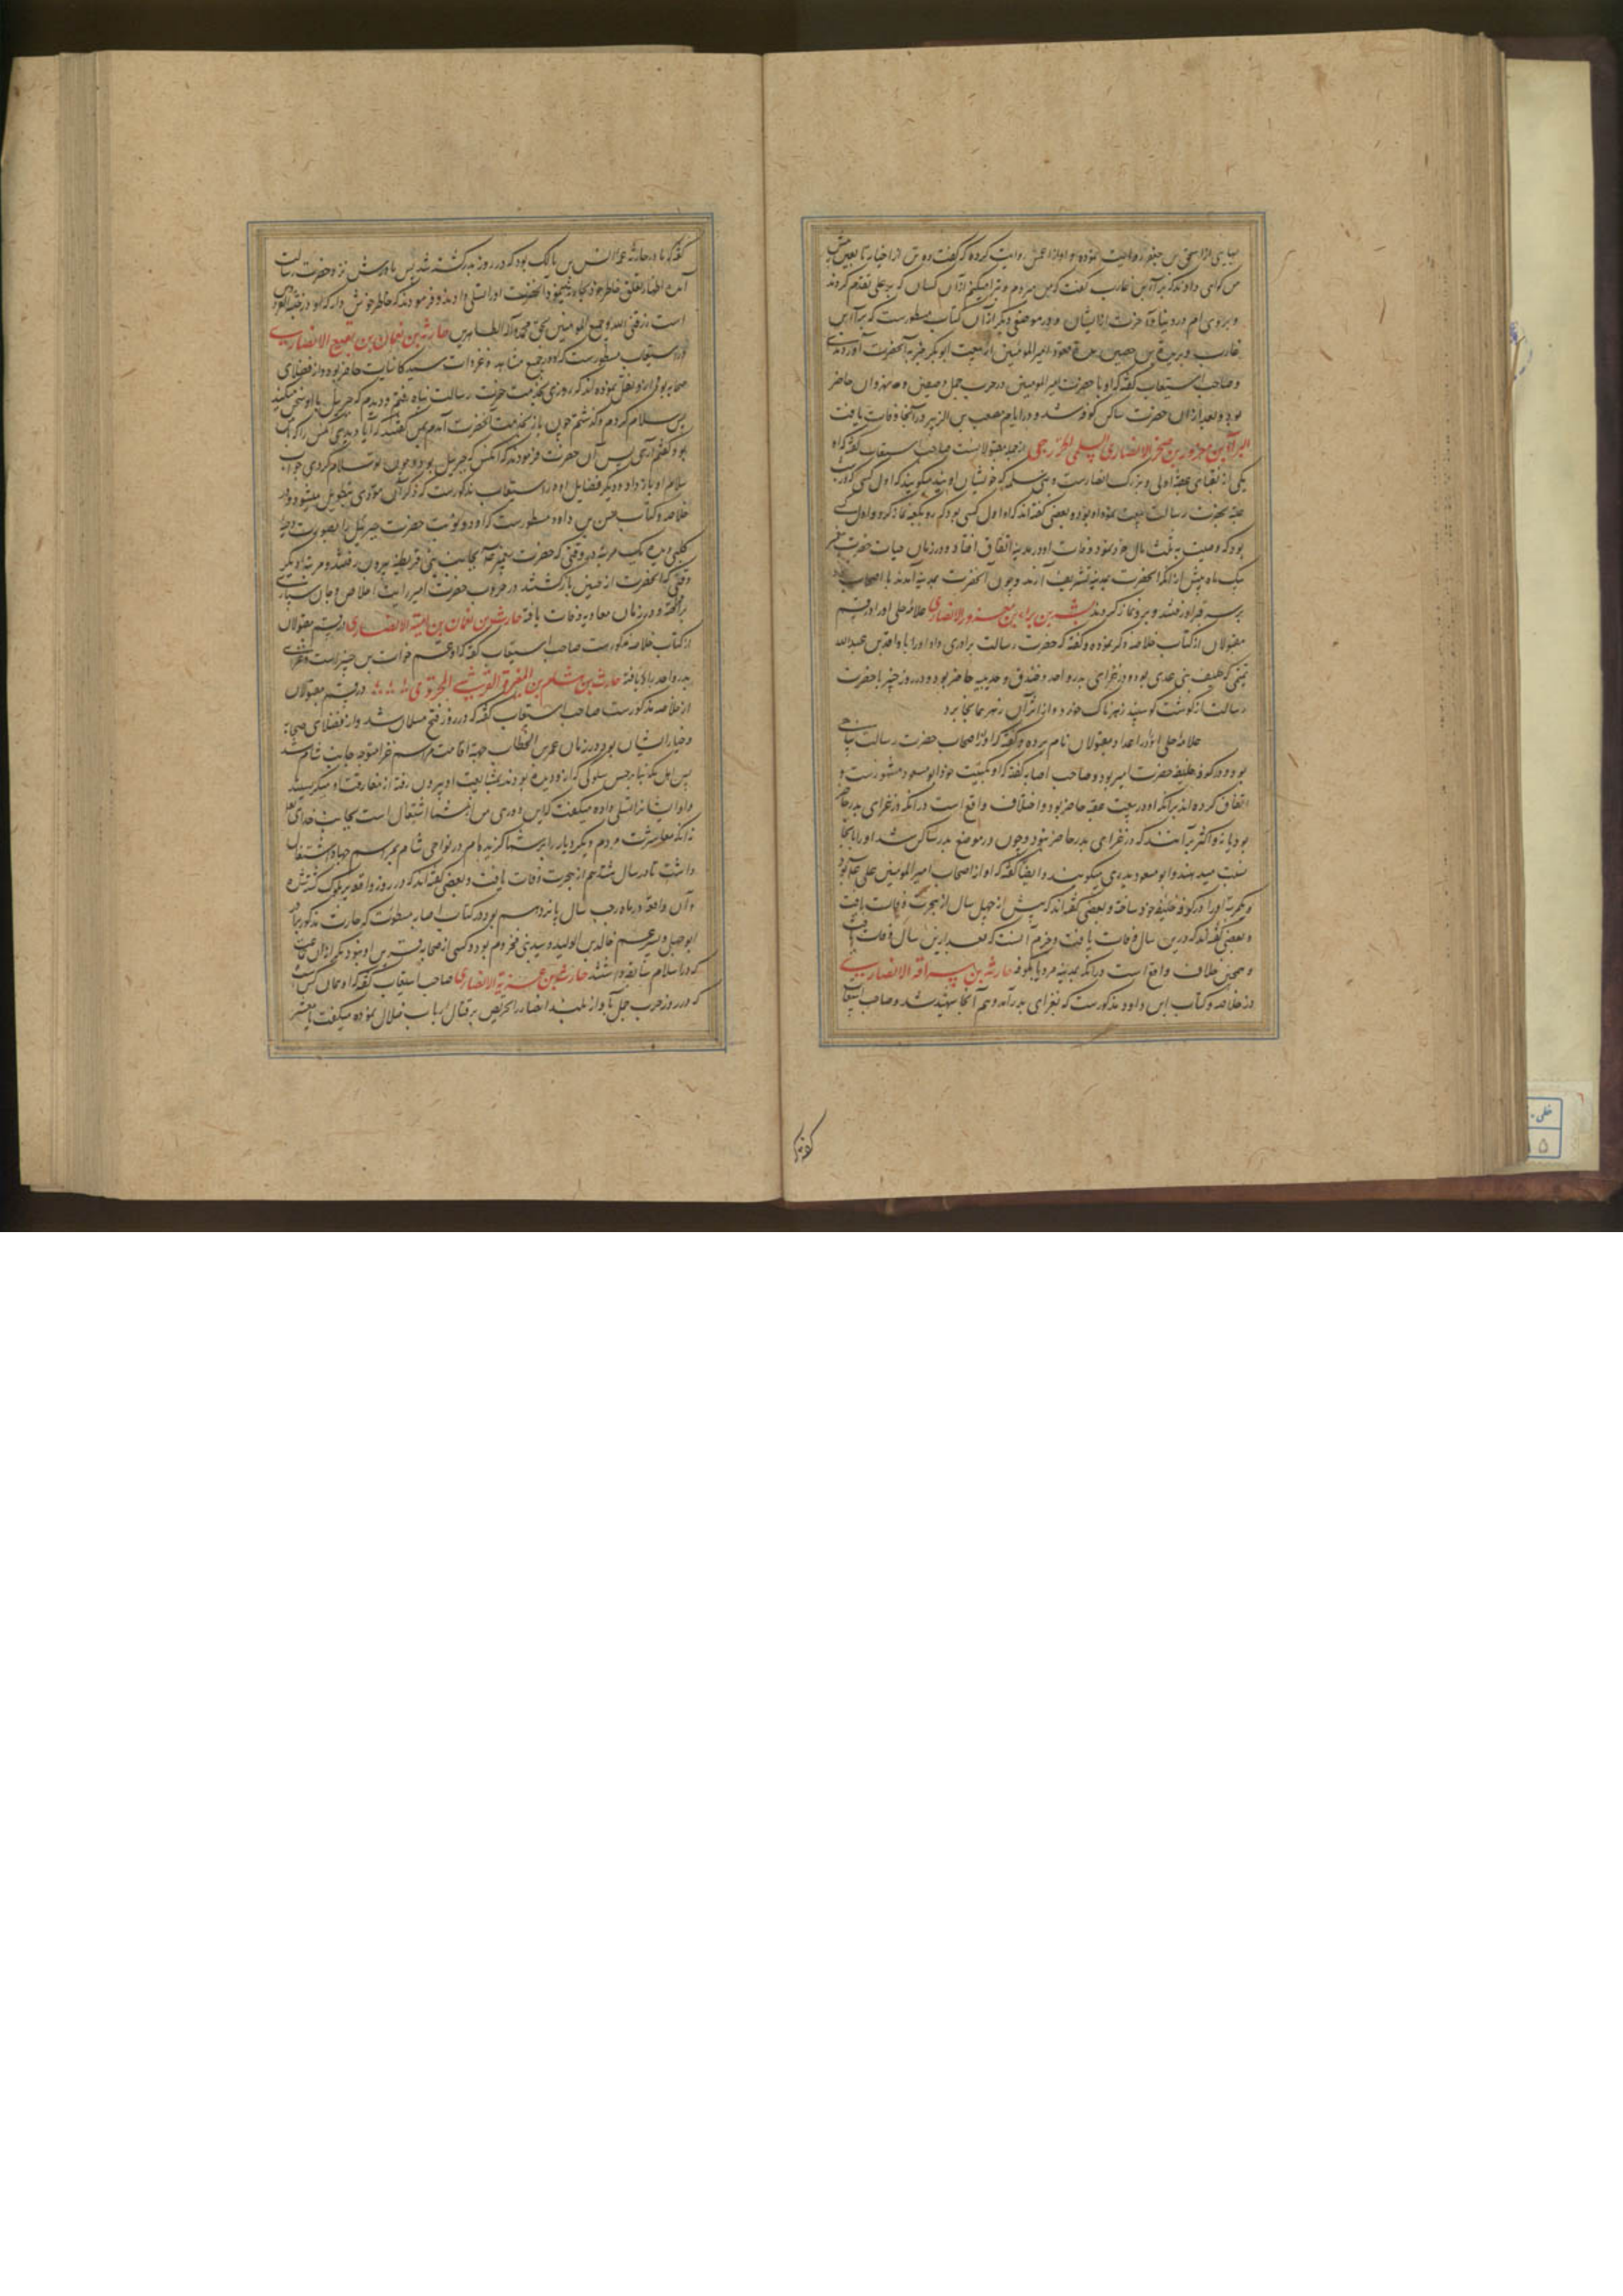 من گواهی دادند که براء بن عازب گفت که من بیزارم و تبرا میکنم از آن کسان که بر علی تقدم کردند
و بروی ام در دنیا و آخرت از ایشان و در موضعی دیگر از آن کتاب مسطورست که براء بن
عازب و بریدة بن حصیب بعد از عقد امیرالمومنین از بیعت ابوبکر خبر به آنحضرت آوردند
و صاحب استیعاب گفته که او با حضرت امیرالمومنین در حرب جمل و صفین و نهروان حاضر
بود و بعد از آن حضرت ساکن کوفه شد و در ایام مصعب بن الزبیر در آنجا وفات یافت
البراء بن معرور بن صخر الانصاری السلمی الخزرجی از جمله مقبولانست صاحب استیعاب گفته که او
یکی از نقبای عقبه اولی و بزرگ انصارست و بنی سلمه که خویشان اویند میگویند که اول کسی که در شب
عقبه بحضرت رسالت بیعت نموده او بود و بعضی گفته اند که او اول کسی بود که رو بکعبه نماز کرد و اول کسی
بود که وصیت به ثلث مال خود نمود و وفات او در مدینه اتفاق افتاد و در زمان حیات حضرت پیغمبر
یک ماه پیش از آنکه آنحضرت بمدینه تشریف آرند و چون آنحضرت بمدینه آمدند با اصحاب
بر سر قبر او رفتند و برو نماز کردند بشر بن براء بن معرور الانصاری علامه حلی او را در قسم
مقبولان از کتاب خلاصه ذکر نموده و گفته که حضرت رسالت برادری داد او را با واقد بن عبدالله
تمیمی که حلیف بنی عدی بود و در غزای بدر و احد و خندق و حدیبیه حاضر بود و در روز خیبر با حضرت
رسالت از گوشت گوسپند زهرناک خورد و از اثر آن زهر همانجا بمرد
علامه حلی او را در اعداد مقبولان نام برده و گفته که او از اصحاب حضرت رسالت پناهی
بود و در کوفه خلیفه حضرت امیر بود و صاحب اصابه گفته که او بکنیت خود ابومسعود مشهورست و
اتفاق کرده اند برآنکه او در بیعت عقبه حاضر بود و اختلاف واقع است در آنکه در غزای بدر حاضر
بود یا نه و اکثر برآنند که در غزای بدر حاضر نبود و چون در موضع بدر ساکن شد او را بآنجا
نسبت میدهند و ابومسعود بدری میگویند و ایضا گفته که او از اصحاب امیرالمومنین علی بود
و یکمرتبه او را در کوفه خلیفه خود ساخته و بعضی گفته اند که پیش از چهل سال از هجرت وفات یافت
و بعضی گفته اند که درین سال وفات یافت و جزم آنست که بعد از این سال وفات یافت
و همچنین خلاف واقع است در آنکه بمدینه مرد یا بکوفه حارثة بن سراقة الانصاری
در خلاصه و کتاب ابن داود مذکورست که بغزای بدر آمد و هم آنجا شهید شد و صاحب استیعاب
گفته که
گفته که مادر حارثه عمه انس بن مالک بود که در روز بدر کشته شد پس مادرش نزد حضرت رسالت
است رزقنی الله و جمیع المومنین بحق محمد و آله الطاهرین حارثة بن نعمان بن نفیع الانصاری
در استیعاب مسطورست که او در جمیع مشاهد و غزوات سید کاینات حاضر بوده و از فضلای
صحابه بود و از او نقل نموده اند که روزی بخدمت حضرت رسالت پناه رفتم و دیدم که جبرئیل با او سخن میکند
پس سلام کردم و گذشتم چون باز بخدمت آنحضرت آمدم بمن گفتند که آیا دیدی آنکس را که با من
بود گفتم آری پس آن حضرت فرمودند که آنکس که جبرئیل بود و چون تو سلام کردی جواب
سلام تو باز داد و دیگر فضایل او در استیعاب مذکورست که ذکر آن مودی بتطویل میشود و در
خلاصه و کتاب حسن بن داود مسطورست که او دو نوبت حضرت جبرئیل را بصورت دحیه
کلبی دیده یک مرتبه در وقتی که حضرت پیغمبر بجانب بنی قریظه بیرون رفتند و مرتبه دیگر
وقتی که آنحضرت از حنین بازگشتند در حروب حضرت امیر رایت اخلاص و جان سپاری
برافراخته و در زمان معاویه وفات یافته حارث بن نعمان بن امیة الانصاری در قسم مقبولان
از کتاب خلاصه مذکورست صاحب استیعاب گفته که او عم خوات بن جبیر است و غزای
بدر و احد را دریافته حارث بن هشام بن المغیرة القرشی المخزومی در قسم مقبولان
از خلاصه مذکورست صاحب استیعاب گفته که در روز فتح مسلمان شد و از فضلای صحابه
و خیار ایشان بود و در زمان عمر بن الخطاب جهة اقامت مراسم غزا متوجه جانب شام شد
پس اهل مکه بنابر حسن سلوکی که از او دیده بودند بمشایعت او بیرون رفته از مفارقت او میگریستند
و او ایشان را تسلی داده میگفت که این دوری من از شما انتقال است بجانب خدای تعالی
نه آنکه معاشرت مردم دیگر و دیار را بر شما گزیده ام در نواحی شام بمراسم جهاد اشتغال
داشت تا در سال هشتدهم از هجرت وفات یافت و بعضی گفته اند که در روز واقعه یرموک کشته شده
و آن واقعه در ماه رجب سال پانزدهم بود و در کتاب اصابه مسطورست که حارث مذکور برادر
ابوجهل و پسر عم خالد بن الولید و سید بنی مخزوم بود
که در اسلام سابقه داشتند حارث بن غزیة الانصاری صاحب استیعاب گفته که او همان کس است
که در روز حرب جمل بآواز بلند انصار را تحریص بر قتال ارباب ضلال نموده میگفت یا معشر
خطی
۵